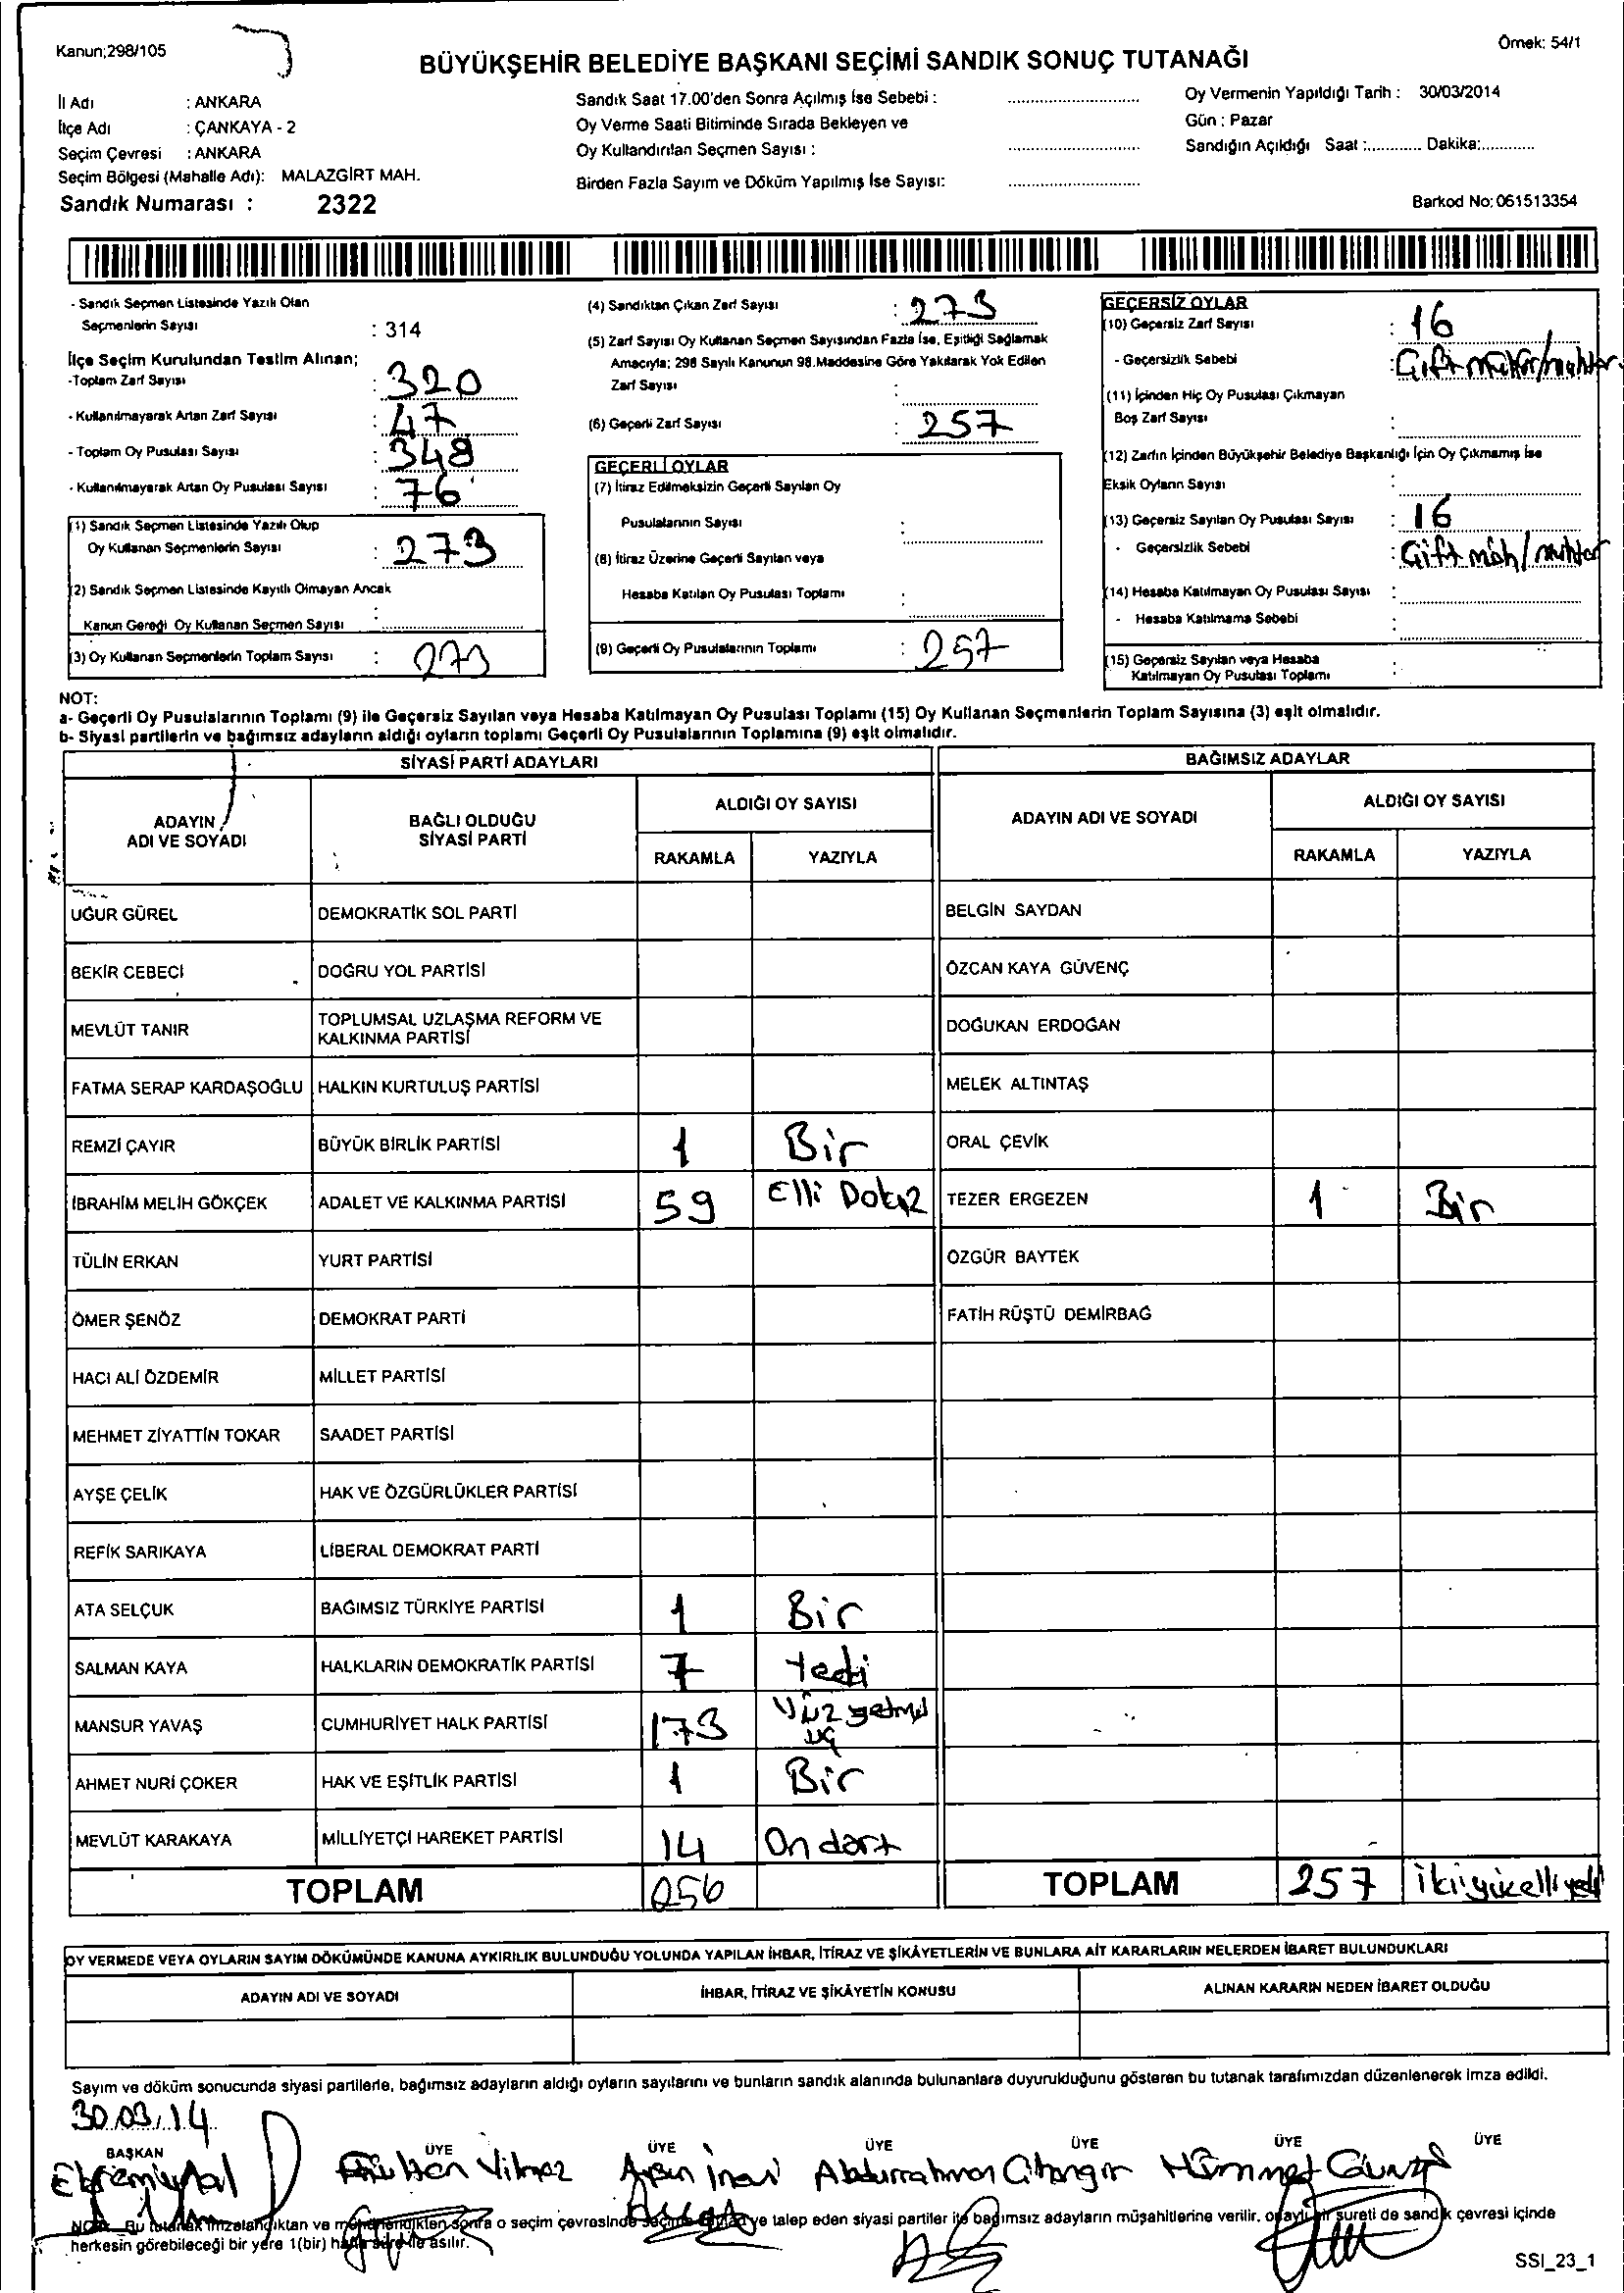 Kanun;298/105
Örnek: 54/1
BÜYÜKŞEHİR BELEDİYE BAŞKANI SEÇİMİ SANDIK SONUÇ TUTANAĞI
İl Adı : ANKARA
İlçe Adı : ÇANKAYA - 2
Seçim Çevresi : ANKARA
Seçim Bölgesi (Mahalle Adı): MALAZGİRT MAH.
Sandık Numarası : 2322
Sandık Saat 17.00'den Sonra Açılmış İse Sebebi :
Oy Verme Saati Bitiminde Sırada Bekleyen ve
Oy Kullandırılan Seçmen Sayısı :
Birden Fazla Sayım ve Döküm Yapılmış İse Sayısı:
Oy Vermenin Yapıldığı Tarih : 30/03/2014
Gün : Pazar
Sandığın Açıldığı Saat :............ Dakika:............
Barkod No: 061513354
- Sandık Seçmen Listesinde Yazılı Olan
Seçmenlerin Sayısı : 314
İlçe Seçim Kurulundan Teslim Alınan;
-Toplam Zarf Sayısı : 320
- Kullanılmayarak Artan Zarf Sayısı : 47
- Toplam Oy Pusulası Sayısı : 348
- Kullanılmayarak Artan Oy Pusulası Sayısı : 76
(1) Sandık Seçmen Listesinde Yazılı Olup
Oy Kullanan Seçmenlerin Sayısı : 273
(2) Sandık Seçmen Listesinde Kayıtlı Olmayan Ancak
Kanun Gereği Oy Kullanan Seçmen Sayısı :
(3) Oy Kullanan Seçmenlerin Toplam Sayısı : 273
(4) Sandıktan Çıkan Zarf Sayısı : 273
(5) Zarf Sayısı Oy Kullanan Seçmen Sayısından Fazla İse, Eşitliği Sağlamak
Amacıyla; 298 Sayılı Kanunun 98.Maddesine Göre Yakılarak Yok Edilen
Zarf Sayısı :
(6) Geçerli Zarf Sayısı : 257
GEÇERLİ OYLAR
(7) İtiraz Edilmeksizin Geçerli Sayılan Oy
Pusulalarının Sayısı :
(8) İtiraz Üzerine Geçerli Sayılan veya
Hesaba Katılan Oy Pusulası Toplamı :
(9) Geçerli Oy Pusulalarının Toplamı : 257
GEÇERSİZ OYLAR
(10) Geçersiz Zarf Sayısı : 16
- Geçersizlik Sebebi : Çift mühür/muhtar
(11) İçinden Hiç Oy Pusulası Çıkmayan
Boş Zarf Sayısı :
(12) Zarfın İçinden Büyükşehir Belediye Başkanlığı İçin Oy Çıkmamış İse
Eksik Oyların Sayısı :
(13) Geçersiz Sayılan Oy Pusulası Sayısı : 16
- Geçersizlik Sebebi : Çift müh/muhtar
(14) Hesaba Katılmayan Oy Pusulası Sayısı :
- Hesaba Katılmama Sebebi :
(15) Geçersiz Sayılan veya Hesaba
Katılmayan Oy Pusulası Toplamı :
NOT:
a- Geçerli Oy Pusulalarının Toplamı (9) ile Geçersiz Sayılan veya Hesaba Katılmayan Oy Pusulası Toplamı (15) Oy Kullanan Seçmenlerin Toplam Sayısına (3) eşit olmalıdır.
b- Siyasi partilerin ve bağımsız adayların aldığı oyların toplamı Geçerli Oy Pusulalarının Toplamına (9) eşit olmalıdır.
SİYASİ PARTİ ADAYLARI
BAĞIMSIZ ADAYLAR
ADAYIN ADI VE SOYADI
BAĞLI OLDUĞU SİYASİ PARTİ
ALDIĞI OY SAYISI
RAKAMLA YAZIYLA
ADAYIN ADI VE SOYADI
ALDIĞI OY SAYISI
RAKAMLA YAZIYLA
UĞUR GÜREL DEMOKRATİK SOL PARTİ BELGİN SAYDAN
BEKİR CEBECİ DOĞRU YOL PARTİSİ ÖZCAN KAYA GÜVENÇ
MEVLÜT TANIR TOPLUMSAL UZLAŞMA REFORM VE KALKINMA PARTİSİ DOĞUKAN ERDOĞAN
FATMA SERAP KARDAŞOĞLU HALKIN KURTULUŞ PARTİSİ MELEK ALTINTAŞ
REMZİ ÇAYIR BÜYÜK BİRLİK PARTİSİ 1 Bir ORAL ÇEVİK
İBRAHİM MELİH GÖKÇEK ADALET VE KALKINMA PARTİSİ 59 Elli Dokuz TEZER ERGEZEN 1 Bir
TÜLİN ERKAN YURT PARTİSİ ÖZGÜR BAYTEK
ÖMER ŞENÖZ DEMOKRAT PARTİ FATİH RÜŞTÜ DEMİRBAĞ
HACI ALİ ÖZDEMİR MİLLET PARTİSİ
MEHMET ZİYATTİN TOKAR SAADET PARTİSİ
AYŞE ÇELİK HAK VE ÖZGÜRLÜKLER PARTİSİ
REFİK SARIKAYA LİBERAL DEMOKRAT PARTİ
ATA SELÇUK BAĞIMSIZ TÜRKİYE PARTİSİ 1 Bir
SALMAN KAYA HALKLARIN DEMOKRATİK PARTİSİ 7 Yedi
MANSUR YAVAŞ CUMHURİYET HALK PARTİSİ 173 Yüz yetmiş üç
AHMET NURİ ÇOKER HAK VE EŞİTLİK PARTİSİ 1 Bir
MEVLÜT KARAKAYA MİLLİYETÇİ HAREKET PARTİSİ 14 On dört
TOPLAM 256 TOPLAM 257 ikiyüzelliyedi
OY VERMEDE VEYA OYLARIN SAYIM DÖKÜMÜNDE KANUNA AYKIRILIK BULUNDUĞU YOLUNDA YAPILAN İHBAR, İTİRAZ VE ŞİKÂYETLERİN VE BUNLARA AİT KARARLARIN NELERDEN İBARET BULUNDUKLARI
ADAYIN ADI VE SOYADI İHBAR, İTİRAZ VE ŞİKÂYETİN KONUSU ALINAN KARARIN NEDEN İBARET OLDUĞU
Sayım ve döküm sonucunda siyasi partilerle, bağımsız adayların aldığı oyların sayılarını ve bunların sandık alanında bulunanlara duyurulduğunu gösteren bu tutanak tarafımızdan düzenlenerek imza edildi.
30.03.14
BAŞKAN ÜYE ÜYE ÜYE ÜYE ÜYE ÜYE
Yılmaz Abdurrahman Cihangir
NOT: Bu tutanak imzalandıktan ve mühürlendikten sonra o seçim çevresinde seçime ve talep eden siyasi partiler ile bağımsız adayların müşahitlerine verilir, onaylı bir sureti de sandık çevresi içinde
herkesin görebileceği bir yere 1(bir) hafta süre ile asılır.
SSI_23_1